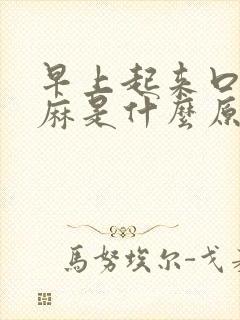 早上起来口
麻是什麼原
馬努埃尔-戈